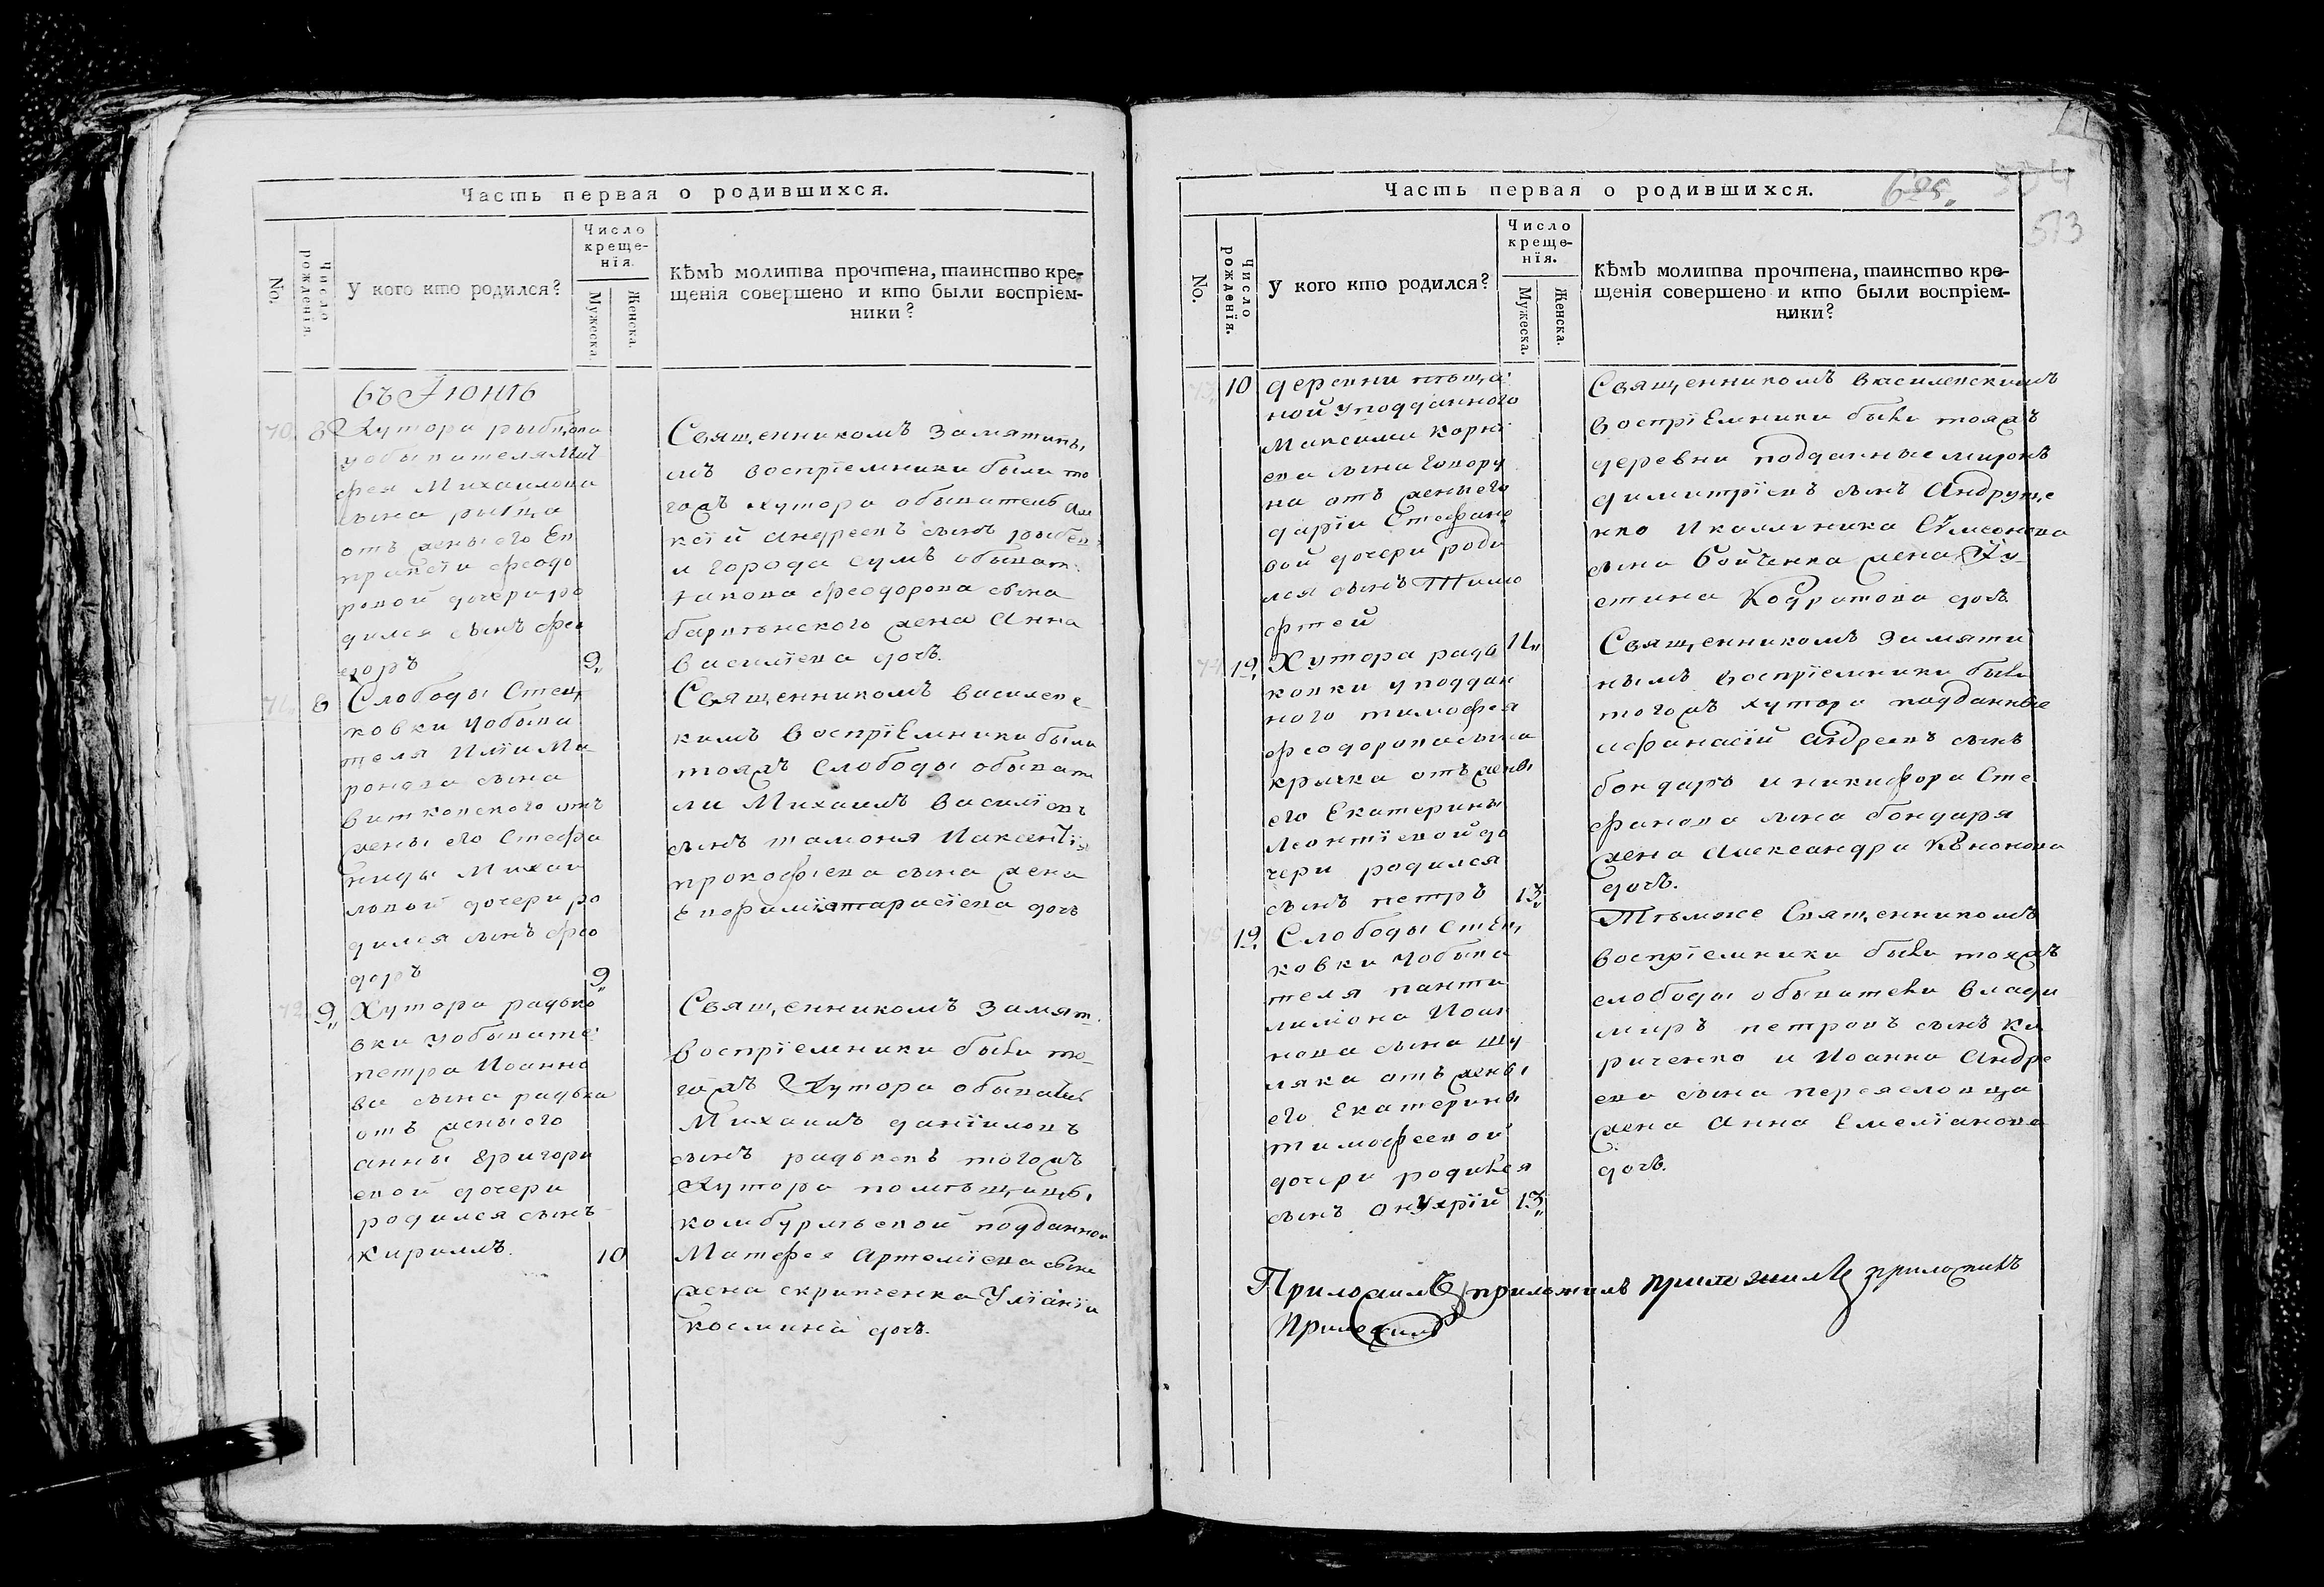 Часть первая о родившихся.
No.
Число рожденія.
У кого кто родился?
Число
креще-
нія.
Мужеска.
Женска.
Кѣмъ молитва прочтена, таинство кре-
щенія совершено и кто были воспріем-
ники?
въ Іюнѣ
70. 8 Хутора рыбцова
уобывателя
фея Михаилова
сына рыбца
отъ жены его Ев
праксіи феодо
ровой дочери ро
дился сынъ фео
доръ 9
Священникомъ Замятины,
мъ воспріемники были то
гожъ хутора обыватель Але
ксій андреевъ сынъ
и города сумъ обыват:
Іакова феодорова сына
жена Анна
василіева дочь.
71. 8 Слободы Стец,
ковки уобыва
теля Иліи Ми
ронова сына
витковского отъ
жены его Стефа
ниды Михаи
ловой дочери ро
дился сынъ фео
доръ 9
Священникомъ василевс
кимъ воспріемники были
тояжъ слободы обывате
ли Михаилъ василіевъ
сынъ
прокофіева сына жена
тарасіева дочь
72. 9 Хутора радько
вки уобывате:
петра Иоанно
ва сына радька
отъ жены его
анны Григорі
евой дочери
родился сынъ
кириллъ. 10
Священникомъ Замят.
воспріемники были то
гожъ Хутора обыватель
Михаилъ даніиловъ
сынъ радьковъ тогожъ
Хутора помѣщицы,
комбурлѣевой подданного
Матфея Артеміева сына
жена скрипченка Уліанія
космина дочь.
Часть первая о родившихся.
625,
573
No.
Число рожденія.
У кого кто родился?
Число
креще-
нія.
Мужеска.
Женска.
Кѣмъ молитва прочтена, таинство кре-
щенія совершено и кто были воспріем-
ники?
73. 10 деревни пѣща:
ной уподданного
Максима корні
ева сына говору
на отъ жены его
даріи Стефано
вой дочери роди
лся сынъ Тимо
фтей 11
Священникомъ василевскимъ
воспріемники были тояжъ
деревни подданные миронъ
димитріевъ сынъ Андруще
нко и каллиника Сѵмеонова
сына бойченка жена Іу-
стина Кодратова дочь.
74. 12 Хутора радь
ковки уподдан
ного тимофея
феодорова сына
крячка отъ жены
его Екатерины
Леонтіевой до
чери родился
сынъ петръ 13
Священникомъ Замяти
нымъ воспріемники были
тогожъ хутора подданные
афанасій андреевъ сынъ
бондарь и никифора Сте
фанова сына бондаря
жена александра Кѵнонова
дочь.
75. 12 Слободы Стец,
ковки уобыва
теля панти
лимона Иоан
нова сына шу
ляка отъ жены
его Екатерины
тимофеевой
дочери родился
сынъ онуфрій 13
Тѣмже Священникомъ
воспріемники были тояжъ
слободы обыватели влади
миръ петровъ сынъ ки
риченко и Иоанна Андре
ева сына переясловца
жена анна Емеліанова
дочь.
Приложилъ приложилъ приложилъ приложилъ
Приложилъ